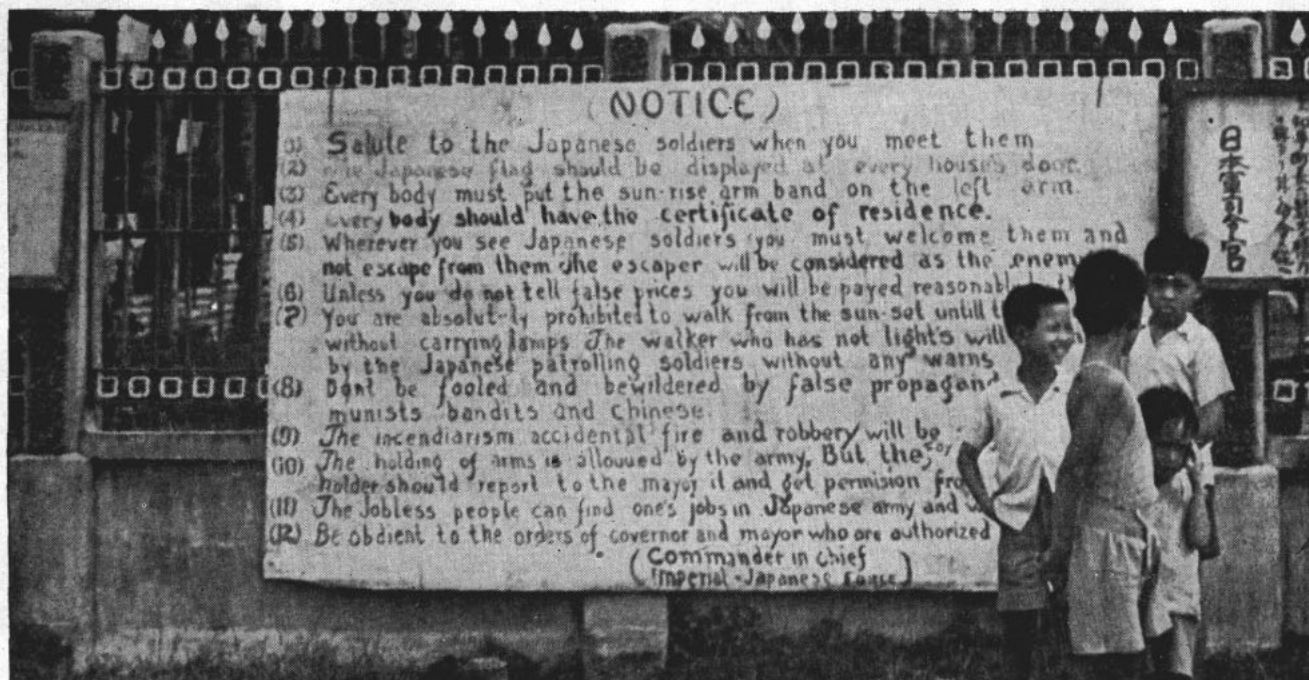 (NOTICE)
(1) Salute to the Japanese soldiers when you meet them
(2) Japanese flag should be displayed at every house's door.
(3) Every body must put the sun-rise arm band on the left arm.
(4) Every body should have the certificate of residence.
(5) Wherever you see Japanese soldiers you must welcome them and
not escape from them The escaper will be considered as the enemy
(6) Unless you do not tell false prices you will be payed
(7) You are absolut-ly prohibited to walk from the sun-set untill
without carrying lamps The walker who has not light's will
by the Japanese patrolling soldiers without any warns
(8) Dont be fooled and bewildered by false
munists bandits and Chinese.
(9) The incendiarism accidental fire and robbery will be
(10) The holding of arms is allowed by the army. But the
holder should report to the mayor it and get permision
(11) The Jobless people can find one's jobs in Japanese army and
(12) Be obdient to the orders of governor and mayor who are authorized
(Commander in chief
Imperial-Japanese Force)
日本軍司令官